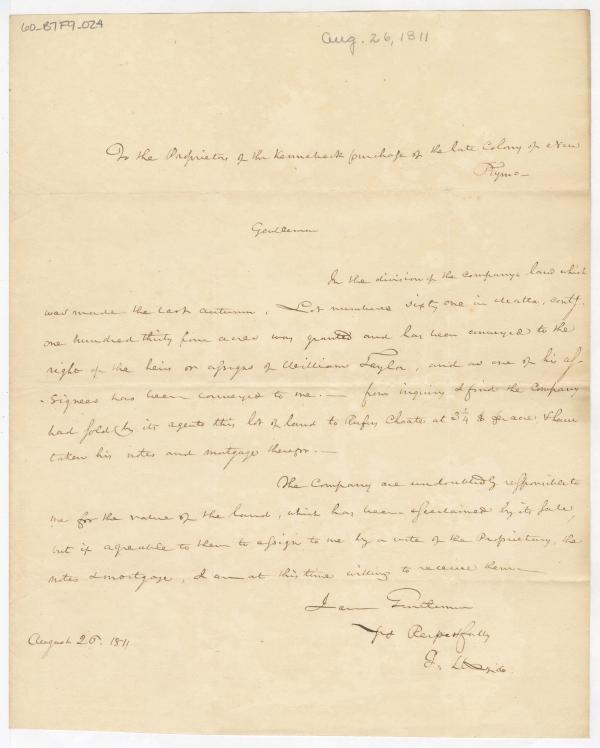 60-B7F9-024
Aug. 26, 1811
To the Proprietors of the Kennebeck purchase of the late Colony of New
Plymo-
Gentlemen
In the division of the companys land which
was made the last autumn. Lot numbered sixty one in Malta, contg.
one hundred thirty four acres was granted and has been conveyed to the
right of the heirs or assigns of William Taylor, and as one of his as-
-signees has been conveyed to me.— from inquiry I find the Company
had sold by its agents this lot of land to Rufus Choate at 3 1/4 $ per acre & have
taken his notes and mortgage therefor.—
The Company are undoubtedly responsible to
me for the value of the land, which has been ascertained by its sale,
but if agreeable to them to assign to me by a vote of the Propriety, the
notes & mortgage, I am at this time willing to receive them—
I am Gentlemen
Respectfully
August 26. 1811
J.